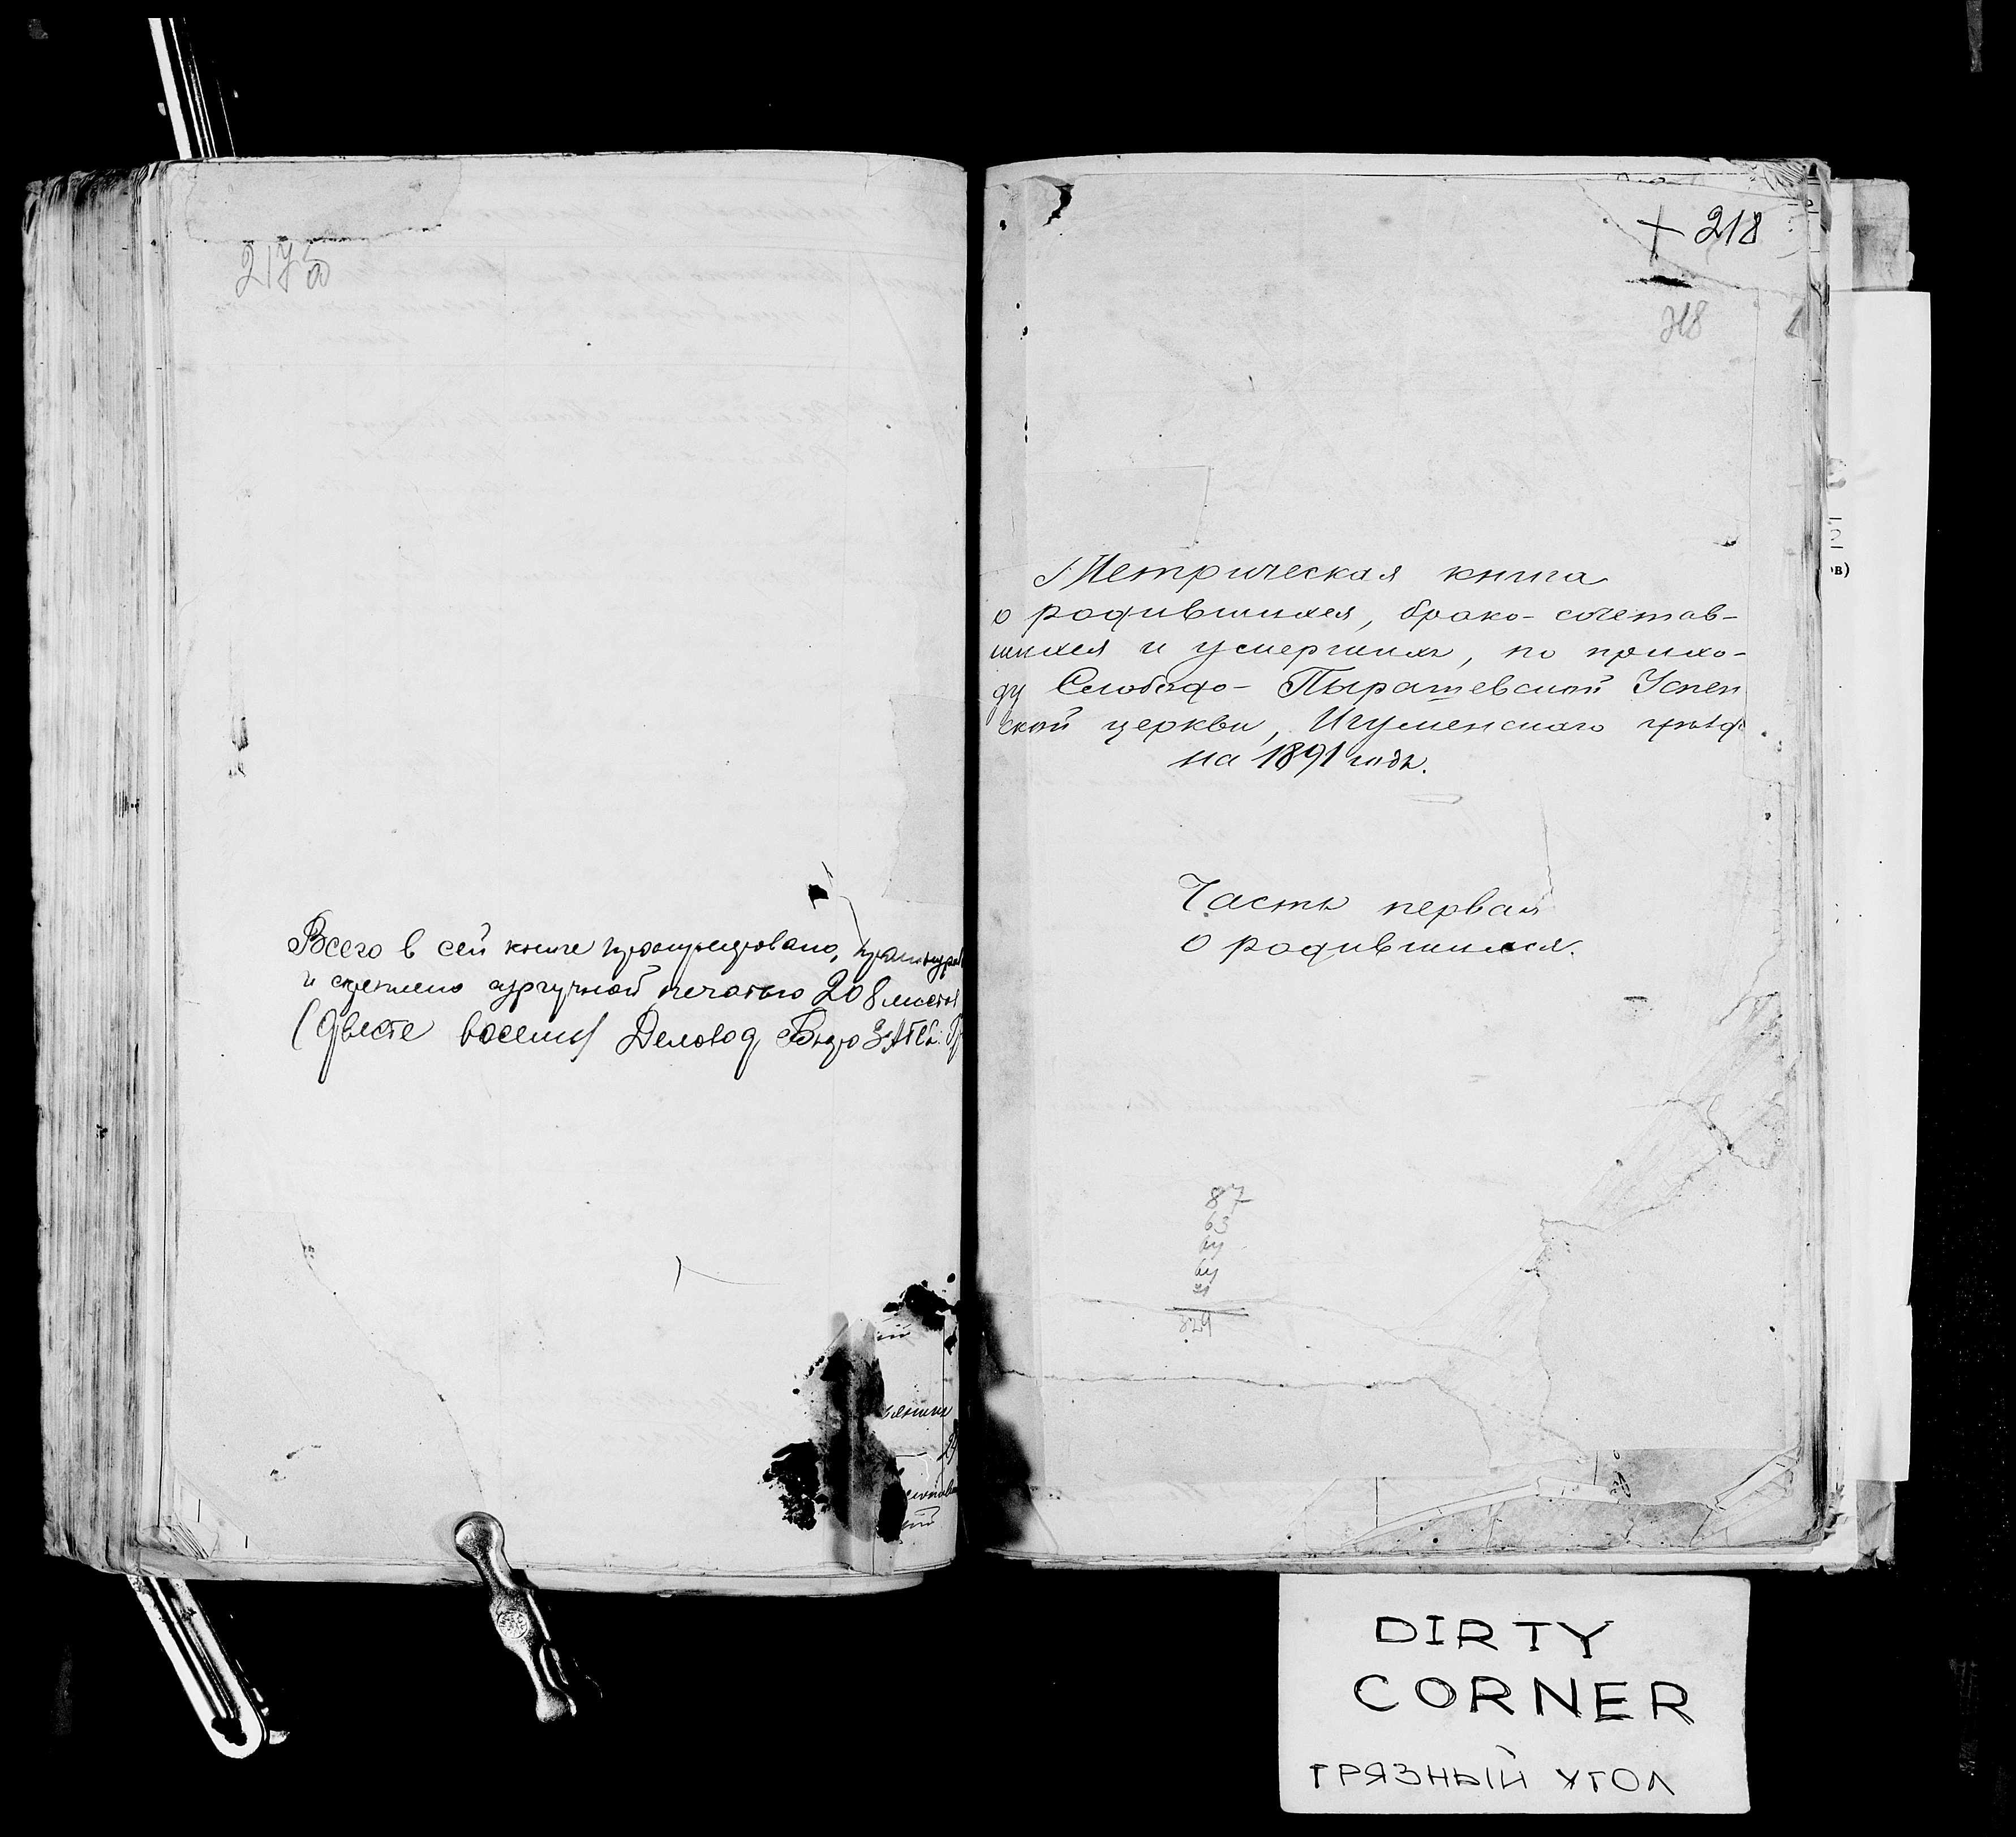 217 об
Всего в сей книге пронумеровано, прошнуров
и скреплено сургучной печатью 208 листов
(двести восемь) Деловод Бюро ЗАГСа
+ 218
218
Метрическая книга
о родившихся, брако-сочетав-
шихся и умершихъ, по прихо-
ду Слободо-Пырашевской Успен
ской церкви, Игуменскаго уѣзда
на 1891 годъ.
Часть первая
О родившихся.
87
63
64
64
324
DIRTY
CORNER
ГРЯЗНЫЙ УГОЛ